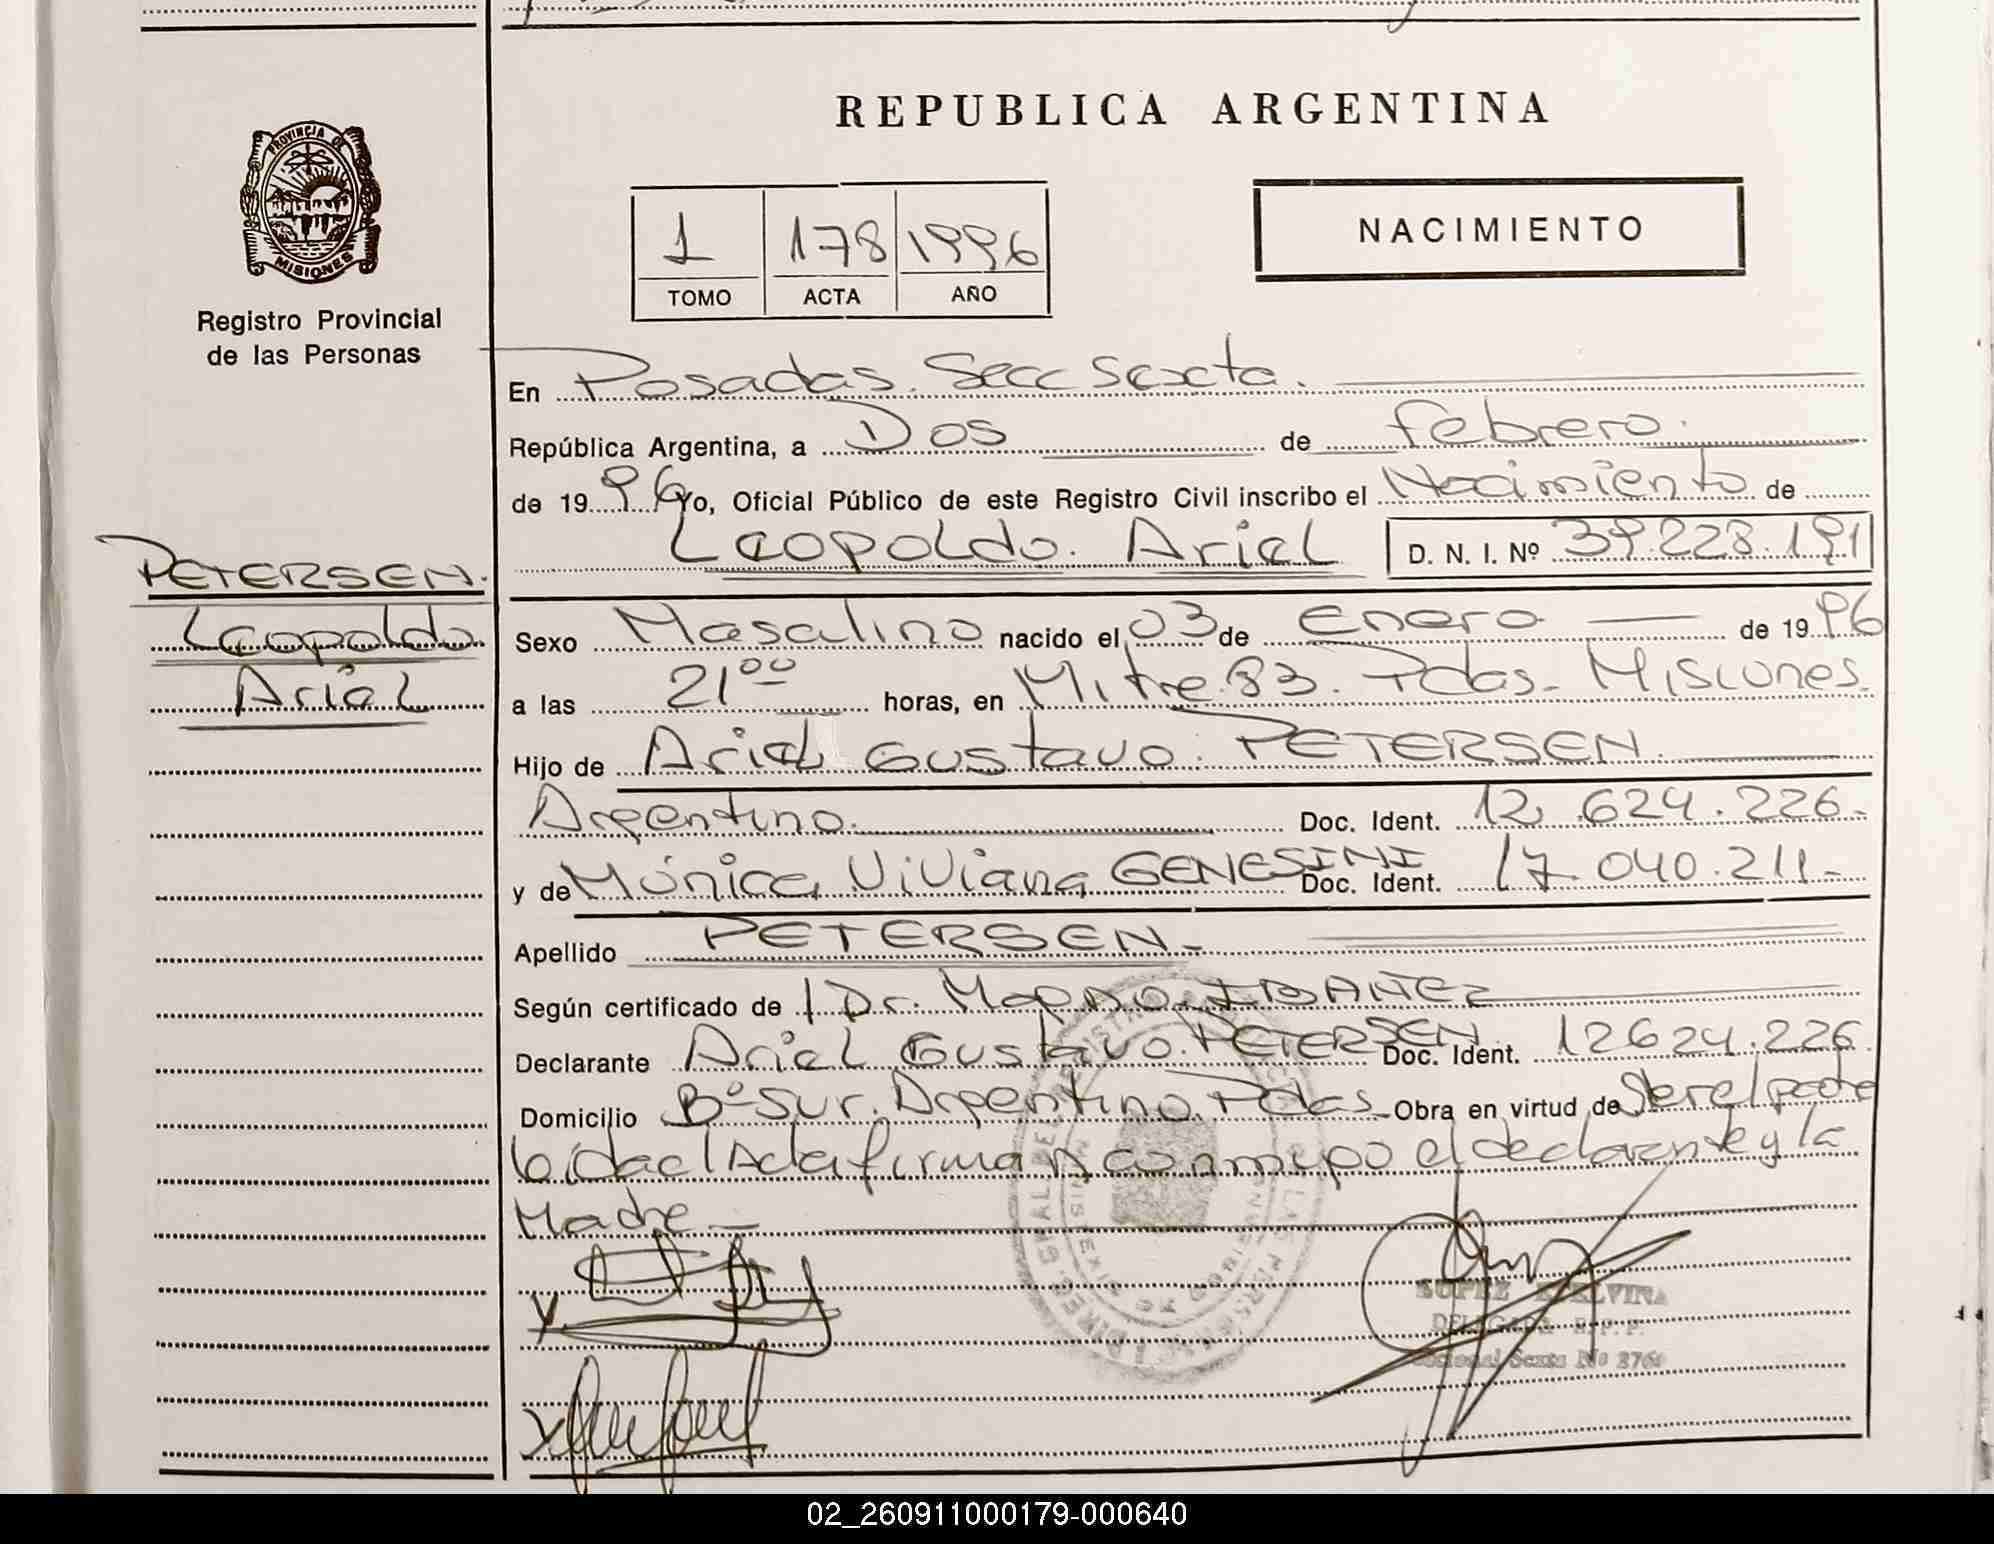 REPUBLICA ARGENTINA
PROVINCIA DE
MISIONES
Registro Provincial
de las Personas
1 178 1996
TOMO ACTA AÑO
NACIMIENTO
En Posadas. Secc Sexta.
República Argentina, a Dos de febrero.
de 1996 Yo, Oficial Público de este Registro Civil inscribo el Nacimiento de
Leopoldo. Ariel D. N. I. Nº 39.228.191
PETERSEN.
Leopoldo
Ariel
Sexo Masculino nacido el 03 de Enero de 1996
a las 21 00 horas, en Mitre 83. Pdas. Misiones.
Hijo de Ariel Gustavo. PETERSEN.
Argentino. Doc. Ident. 12.624.226.-
y de Mónica Viviana GENESINI Doc. Ident. 17.040.211.-
Apellido PETERSEN.-
Según certificado de Dr. IBAÑEZ
Declarante Ariel Gustavo. PETERSEN. Doc. Ident. 12624.226.
Domicilio Bº Sur. Argentino. Pdas. Obra en virtud de Ser el padre
Leida el Acta firman conmigo el declarante y la
Madre.-
DELEGADA R.P.P.
Seccional Sexta Nº
02_260911000179-000640